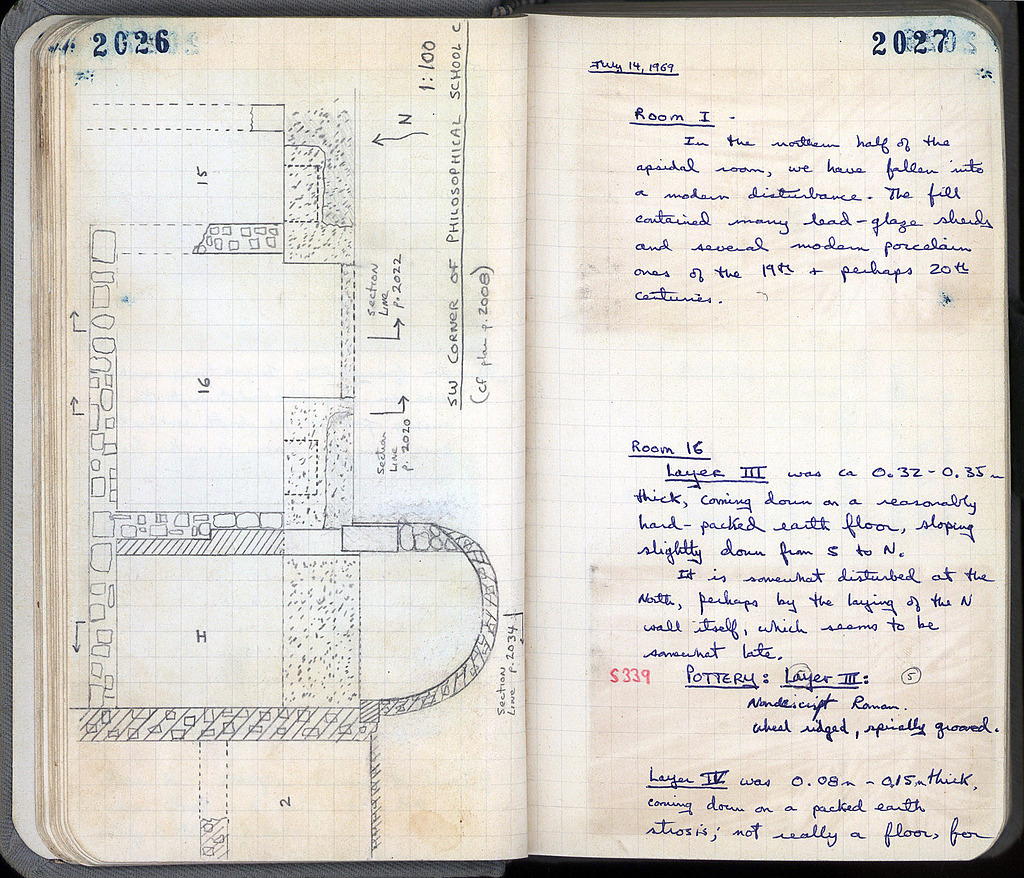 2026
1:100
SW CORNER OF PHILOSOPHICAL SCHOOL C
(cf plan p. 2008)
N
15
16
H
2
Section
Line
p. 2022
Section
Line
p. 2020
Section
Line p. 2034
2027
July 14, 1969
Room I -
In the northern half of the
apsidal room, we have fallen into
a modern disturbance. The fill
contained many lead-glaze sherds
and several modern porcelain
ones of the 19th + perhaps 20th
centuries.
Room 16
Layer III was ca 0.32 - 0.35 m
thick, coming down on a reasonably
hard-packed earth floor, sloping
slightly down from S to N.
It is somewhat disturbed at the
North, perhaps by the laying of the N
wall itself, which seems to be
somewhat late.
S339 POTTERY: Layer III: 5
Nondescript Roman.
wheel ridged, spirally grooved.
Layer IV was 0.08m - 0.15m thick,
coming down on a packed earth
strosis; not really a floor, for